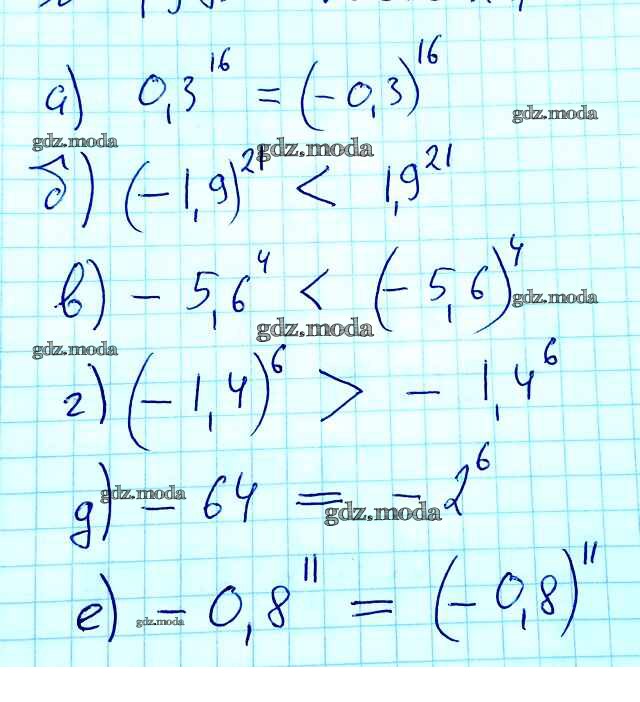 а) 0,3¹⁶ = (-0,3)¹⁶
gdz.moda
gdz.moda gdz.moda
б) (-1,9)²¹ < 1,9²¹
в) - 5,6⁴ < (-5,6)⁴
gdz.moda
gdz.moda
gdz.moda
г) (-1,4)⁶ > - 1,4⁶
д) - 64 = - 2⁶
gdz.moda
gdz.moda
е) - 0,8¹¹ = (-0,8)¹¹
gdz.moda